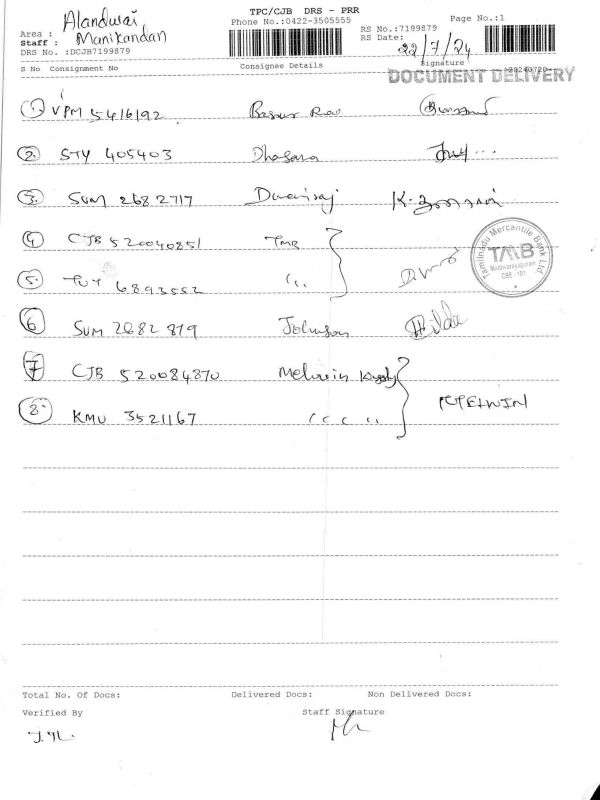 TPC/CJB DRS - PRR
Area : Alandurai
Phone No.:0422-3505555
Page No.:1
Staff : Manikandan
RS No.:7199879
RS Date: 22/7/24
DRS No. :DCJB7199879
S No Consignment No Consignee Details Signature
DOCUMENT DELIVERY
1. VPM 5416192
2. STY 405403 Dhasana
3. SUM 2682717 Durairaj
4. CJB 520040851 TMB
Tamilnadu Mercantile Bank Ltd.
TMB
CBE - 101
5. TUT 6893552 "
6. SUM 2682879 Johnson Hilda
7. CJB 520084870
8. KMU 3521167 " "
MELWIN
Total No. Of Docs: Delivered Docs: Non Delivered Docs:
Verified By Staff Signature